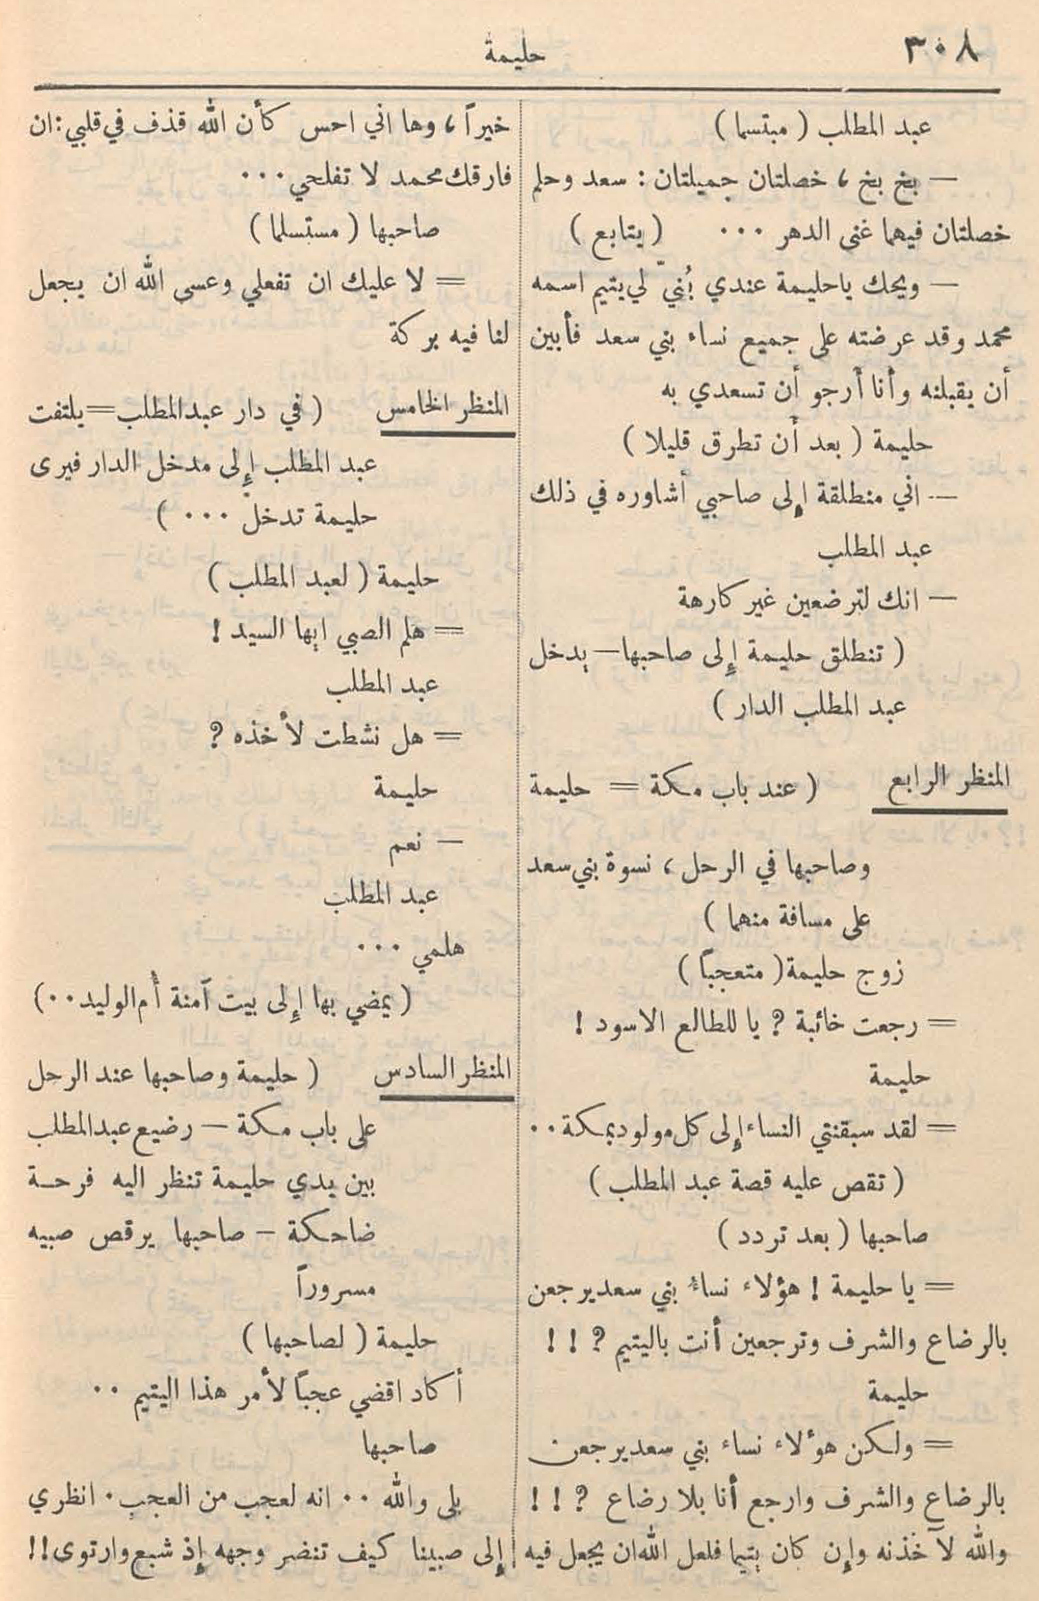 ٣٠٨
حليمة
عبد المطلب ( مبتسما )
— بخ بخ ، خصلتان جميلتان : سعد وحلم
خصلتان فيهما غنى الدهر ٠٠٠ ( يتابع )
— ويحك ياحليمة عندي بُنيّ لي يتيم اسمه
محمد وقد عرضته على جميع نساء بني سعد فأبين
أن يقبلنه وأنا أرجو أن تسعدي به
حليمة ( بعد أن تطرق قليلا )
— اني منطلقة إلى صاحبي أشاوره في ذلك
عبد المطلب
— انك لترضعين غير كارهة
( تنطلق حليمة إلى صاحبها — يدخل
عبد المطلب الدار )
المنظر الرابع ( عند باب مكة = حليمة
وصاحبها في الرحل ، نسوة بني سعد
على مسافة منهما )
زوج حليمة ( متعجباً )
= رجعت خائبة ? يا للطالع الاسود !
حليمة
= لقد سبقنتي النساء إلى كل مولود بمكة ٠٠
( تقص عليه قصة عبد المطلب )
صاحبها ( بعد تردد )
= يا حليمة ! هؤلاء نساء بني سعد يرجعن
بالرضاع والشرف وترجعين أنت باليتيم ? ! !
حليمة
= ولكن هؤلاء نساء بني سعد يرجعن
بالرضاع والشرف وارجع أنا بلا رضاع ? ! !
والله لآخذنه وإن كان يتيما فلعل الله ان يجعل فيه
خيراً ، وها اني احس كأن الله قذف في قلبي : ان
فارقك محمد لا تفلحي ٠٠٠
صاحبها ( مستسلما )
= لا عليك ان تفعلي وعسى الله ان يجعل
لنا فيه بركة
المنظر الخامس ( في دار عبد المطلب = يلتفت
عبد المطلب إلى مدخل الدار فيرى
حليمة تدخل ٠٠٠ )
حليمة ( لعبد المطلب )
= هلم الصبي ايها السيد !
عبد المطلب
= هل نشطت لأخذه ?
حليمة
— نعم
عبد المطلب
هلمي ٠٠٠
( يمضي بها إلى بيت آمنة أم الوليد ٠٠ )
المنظر السادس ( حليمة وصاحبها عند الرحل
على باب مكة — رضيع عبد المطلب
بين يدي حليمة تنظر اليه فرحة
ضاحكة — صاحبها يرقص صبيه
مسروراً
حليمة ( لصاحبها )
أكاد اقضي عجباً لأمر هذا اليتيم ٠٠
صاحبها
بلى والله ٠٠ انه لعجب من العجب ٠ انظري
إلى صبينا كيف تنضر وجهه إذ شبع وارتوى !!